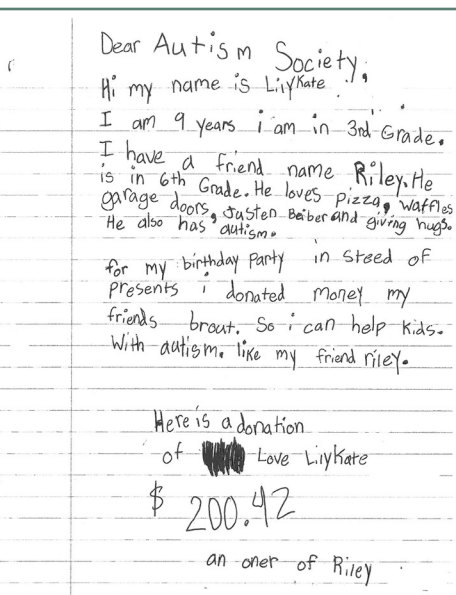 Dear Autism Society,
Hi my name is LilyKate
I am 9 years i am in 3rd Grade.
I have a friend name Riley. He
is in 6th Grade. He loves Pizza, waffles
garage doors, Justen Beiber and giving hugs.
He also has autism.
for my birthday Party in steed of
Presents i donated money my
friends brout. So i can help kids.
With autism. like my friend riley.
Here is a donation
of Love LilyKate
$ 200.42
an oner of Riley